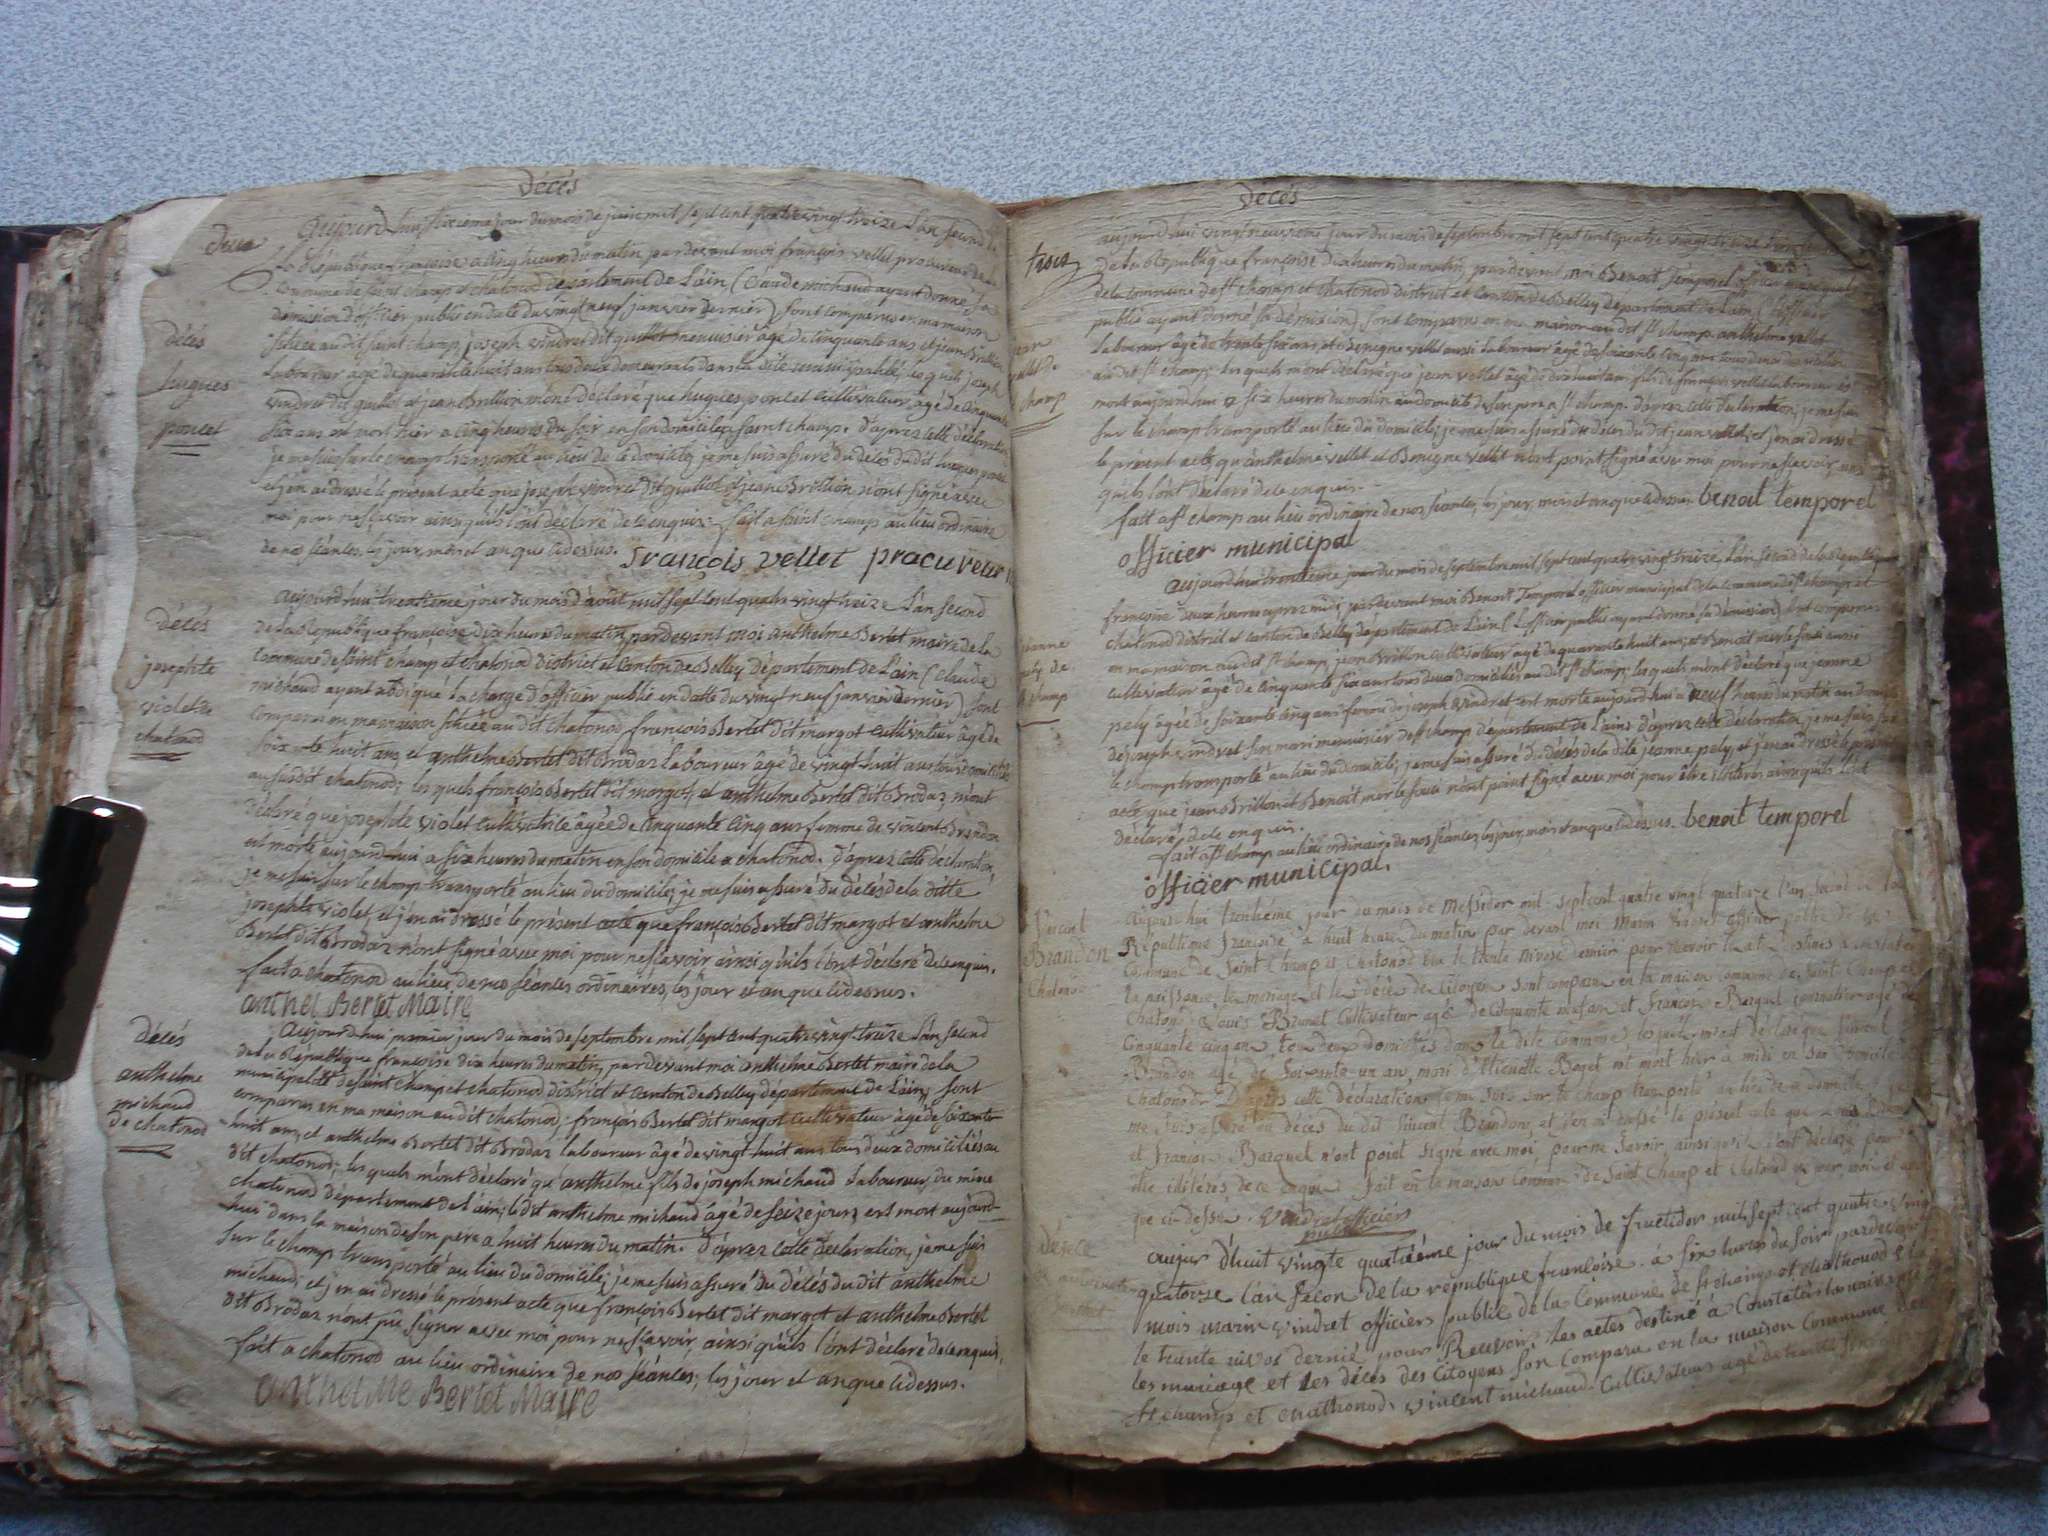 décés
deux
aujourd'hui sixieme jour du mois de juin mil sept cent quatre vingt treize L'an second de
la République françoise a cinq heures du matin, par devant moi françois vellet procureur de la
commune de saint champ et chatonod département de L'ain (Claude michaud ayant donné sa
démission d'officier public en date du vingt neuf janvier dernier) sont comparus en ma maison
décés
scituée au dit saint champ, joseph vindret dit guillot menuisier âgé de cinquante ans et jean Brillion
hugues
Laboureur âgé de quarante huit ans tous deux demeurants dans la dite municipalité; les quels joseph
poncet
vindret dit guillot et jean Brillion m'ont déclaré que hugues poncet cultivateur âgé de cinquante
six ans est mort hier a cinq heures du soir en son domicile a saint champ. d'aprez cette déclaration
je me suis sur le champ transporté au lieu de ce domicile, je me suis assuré du décés du dit hugues poncet
et j'en ai dressé le présent acte que joseph vindret dit guillot et jean Brillion n'ont signé avec
moi pour ne sçavoir ainsi qu'ils l'ont déclaré de ce enquis. fait a saint champ au lieu ordinaire
de nos séances, les jour, mois et an que cidessus. françois vellet procureur
aujourd'hui trentieme jour du mois d'août mil sept cent quatre vingt treize L'an second
décés
de la République françoise dix heures du matin, pardevant moi anthelme Bertet maire de la
josephte
commune de saint champ et chatonod district et canton de Belley département de L'ain (claude
violet de
michaud ayant abdiqué la charge d'officier public en datte du vingt neuf janvier dernier) sont
chatonod
comparus en ma maison scituée au dit chatonod françois Bertet dit margot cultivateur âgé de
soixante huit ans, et anthelme Bertet dit Brodaz laboureur âgé de vingt huit ans tous deux domiciliés
au susdit chatonod; les quels françois Bertet dit margot, et anthelme Bertet dit Brodaz m'ont
déclaré que josephte violet cultivatrice âgée de cinquante cinq ans femme de vincent Brandon
est morte aujourd'hui a six heures du matin en son domicile a chatonod. d'aprez cette déclaration,
je me suis sur le champ transporté au lieu du domicile; je me suis assuré du décés de la ditte
josephte violet, et j'en ai dressé le présent acte que françois Bertet dit margot et anthelme
Bertet dit Brodaz n'ont signé avec moi pour ne sçavoir ainsi qu'ils l'ont déclaré de ce enquis.
fait a chatonod au lieu de nos séances ordinaires, les jour et an que cidessus.
anthel Bertet Maire
décés
aujourd'hui premier jour du mois de septembre mil sept cent quatre vingt treize L'an second
de la République françoise dix heures du matin, par devant moi anthelme Bertet maire de la
anthelme
municipalité de saint champ et chatonod district et canton de Belley département de L'ain, sont
michaud
comparus en ma maison au dit chatonod; françois Bertet dit margot cultivateur âgé de soixante
de chatonod
huit ans, et anthelme Bertet dit Brodaz laboureur âgé de vingt huit ans tous deux domiciliés au
dit chatonod; les quels m'ont déclaré qu'anthelme fils de joseph michaud Laboureur du même
chatonod département de L'ain; le dit anthelme michaud âgé de seize jours est mort aujourd-
hui dans la maison de son père a huit heures du matin. d'aprez cette déclaration, je me suis
sur le champ transporté au lieu du domicile; je me suis assuré du décés du dit anthelme
michaud; et j'en ai dressé le présent acte que françois Bertet dit margot et anthelme Bertet
dit Brodaz n'ont pû signer avec moi pour ne sçavoir ainsi qu'ils l'ont déclaré de ce enquis,
fait a chatonod au lieu ordinaire de nos séances, les jour et an que cidessus.
anthelMe Bertet Maire
décés
trois
aujourd'hui vingt neuvieme jour du mois de septembre mil sept cent quatre vingt treize L'an second
de la République françoise dix heures du matin, pardevant moi Benoit Temporel officier municipal
de la commune de st champ et chatonod district et canton de Belley département de L'ain (l'officier
public ayant donné sa démission) sont comparus en ma maison au dit st champ anthelme vellet
laboureur âgé de trente six ans, et Benigne vellet aussi laboureur âgé de soixante cinq ans tous deux domiciliés
au dit st champ; les quels m'ont déclaré que jean vellet âgé de fils de françois vellet laboureur est
champ
mort aujourd'hui a six heures du matin au domicile de son pere a st champ. d'aprez cette déclaration, je me suis
sur le champ transporté au lieu du domicile; je me suis assuré du décés du dit jean vellet, et j'en ai dressé
le présent acte qu'anthelme vellet et Benigne vellet n'ont point signé avec moi pour ne sçavoir, ainsi
qu'ils l'ont déclaré de ce enquis.
fait a st champ au lieu ordinaire de nos séances, les jour, mois et an que cidessus. benoit temporel
officier municipal
aujourd'hui trentieme jour du mois de septembre mil sept cent quatre vingt treize L'an second de la République
françoise deux heures aprez midi, pardevant moi Benoit Temporel officier municipal de la commune de st champ et
chatonod district et canton de Belley département de L'ain (L'officier public ayant donné sa démission) sont comparus
jeanne
en ma maison au dit st champ, jean Brillion cultivateur âgé de quarante huit ans, et Benoit aussi
pely de
cultivateur âgé de cinquante six ans tous deux domiciliés au dit st champ; les quels m'ont déclaré que jeanne
champ
pely âgée de soixante cinq ans femme de joseph vindret est morte aujourd'hui a neuf heures du matin au domicile
de joseph vindret son mari menuisier de st champ département de L'ain. d'aprez cette déclaration, je me suis sur
le champ transporté au lieu du domicile; je me suis assuré du décés de la dite jeanne pely, et j'en ai dressé le présent
acte que jean Brillion et Benoit n'ont point signé avec moi pour être iliterés ainsi qu'ils l'ont
déclaré de ce enquis.
fait a st champ au lieu ordinaire de nos séances, les jour, mois et an que cidessus. benoit temporel
officier municipal.
Vincent
Aujourd'hui trentiéme jour du mois de Messidor mil septcent quatre vingt quatorze l'an second de la
Brandon
République françoise à huit heures du matin par devant moi Marin Vindret officier public de la
Chatonod
Commune de Saint Champ et Chatonod élu le trente nivose dernier pour recevoir les actes destinés à constater
la naissance, le mariage et le décès des Citoyens sont comparu en la maison commune de Saint Champ et
Chatonod Louis Brunet Cultivateur agé de Cinquante neuf ans et François Barquet agé de
Cinquante cinq ans, tous deux domiciliés dans la dite commune lesquels m'ont déclaré que Vincent
Brandon agé de Soixante un an, mari d' est mort hier à midi en son domicile à
Chatonod. D'après cette déclaration je me suis sur le champ transporté au lieu de ce domicile, je
me suis assuré du décès du dit Vincent Brandon, et j'en ai dressé le présent acte que
et François Barquet n'ont point signé avec moi, pour ne Savoir, ainsi qu'ils l'ont déclaré pour
être ilitérés de ce enquis. Fait en la maison Commune de Saint Champ et Chatonod les jour, mois et an
que ci dessus. Vindret officier
public
décéce
aujour d'huit vingte quatriéme jour du mois de fructidor mil sept cent quatre vingt
quatorse l'an second de la république françoise à six heures du soir pardevant
mois marin vindret officiers public de la Commune de st champ et chathonod élu
le trante nivos dernié pour Recevoir les actes destiné à Constatér la naissance
les mariage et les décés des Citoyens son Comparu en la maison Commune de
st champ et chathonod, vincent michaud Cultivateur agé de trante